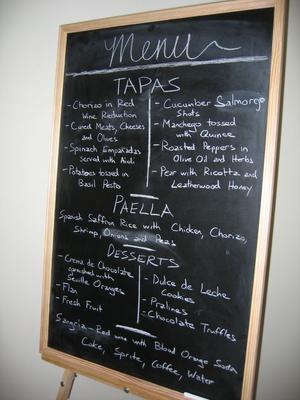 Menu
TAPAS
- Chorizo in Red
Wine Reduction
- Cured Meats, Cheeses
and Olives
- Spinach Empañadas
served with Aioli
- Potatoes tossed in
Basil Pesto
- Cucumber Salmorejo
Shots
- Manchego tossed
with Quince
- Roasted Peppers in
Olive Oil and Herbs
- Pear with Ricotta and
Leatherwood Honey
PAELLA
Spanish Saffron Rice with Chicken, Chorizo,
Shrimp, Onions and Peas
DESSERTS
- Crema de Chocolate
garnished with
Seville Oranges
- Flan
- Fresh Fruit
- Dulce de Leche
Cookies
- Pralines
- Chocolate Truffles
Sangria - Red wine with Blood Orange Soda
Coke, Sprite, Coffee, Water